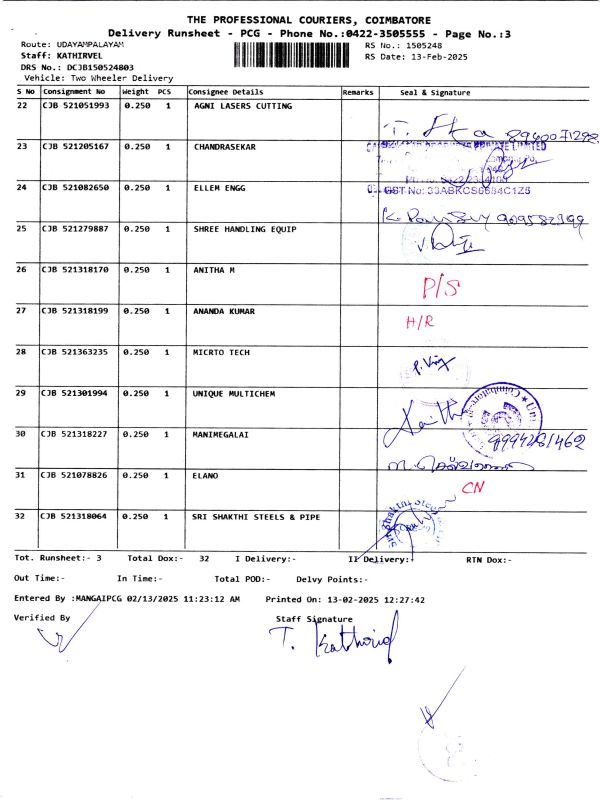 THE PROFESSIONAL COURIERS, COIMBATORE
Delivery Runsheet - PCG - Phone No.:0422-3505555 - Page No.:3
Route: UDAYAMPALAYAM RS No.: 1505248
Staff: KATHIRVEL RS Date: 13-Feb-2025
DRS No.: DCJB150524803
Vehicle: Two Wheeler Delivery
S No Consignment No Weight PCS Consignee Details Remarks Seal & Signature
22 CJB 521051993 0.250 1 AGNI LASERS CUTTING
8940071298
23 CJB 521205167 0.250 1 CHANDRASEKAR
LIMITED
24 CJB 521082650 0.250 1 ELLEM ENGG
GST No: 33ABKCS6684C1Z5
25 CJB 521279887 0.250 1 SHREE HANDLING EQUIP
26 CJB 521318170 0.250 1 ANITHA M
P/S
27 CJB 521318199 0.250 1 ANANDA KUMAR
H/R
28 CJB 521363235 0.250 1 MICRTO TECH
29 CJB 521301994 0.250 1 UNIQUE MULTICHEM
30 CJB 521318227 0.250 1 MANIMEGALAI
31 CJB 521078826 0.250 1 ELANO
CN
32 CJB 521318064 0.250 1 SRI SHAKTHI STEELS & PIPE
Tot. Runsheet:- 3 Total Dox:- 32 I Delivery:- II Delivery:- RTN Dox:-
Out Time:- In Time:- Total POD:- Delvy Points:-
Entered By :MANGAIPCG 02/13/2025 11:23:12 AM Printed On: 13-02-2025 12:27:42
Verified By Staff Signature